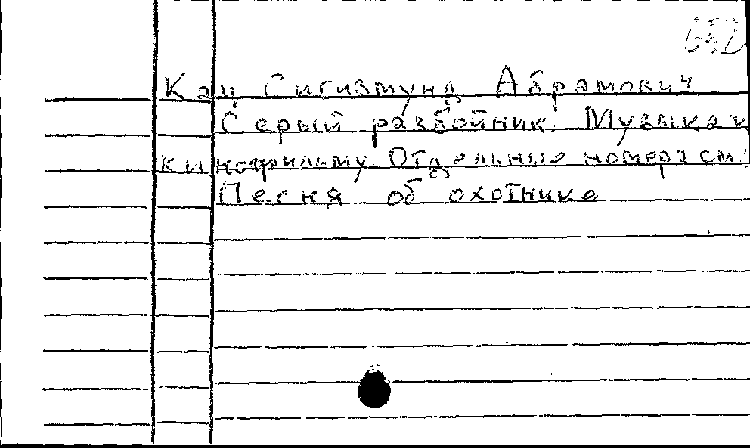 Кац Сигизмунд Абрамович
Серый разбойник. Музыка к
кинофильму. Отдельные номера см.
Песня об охотнике